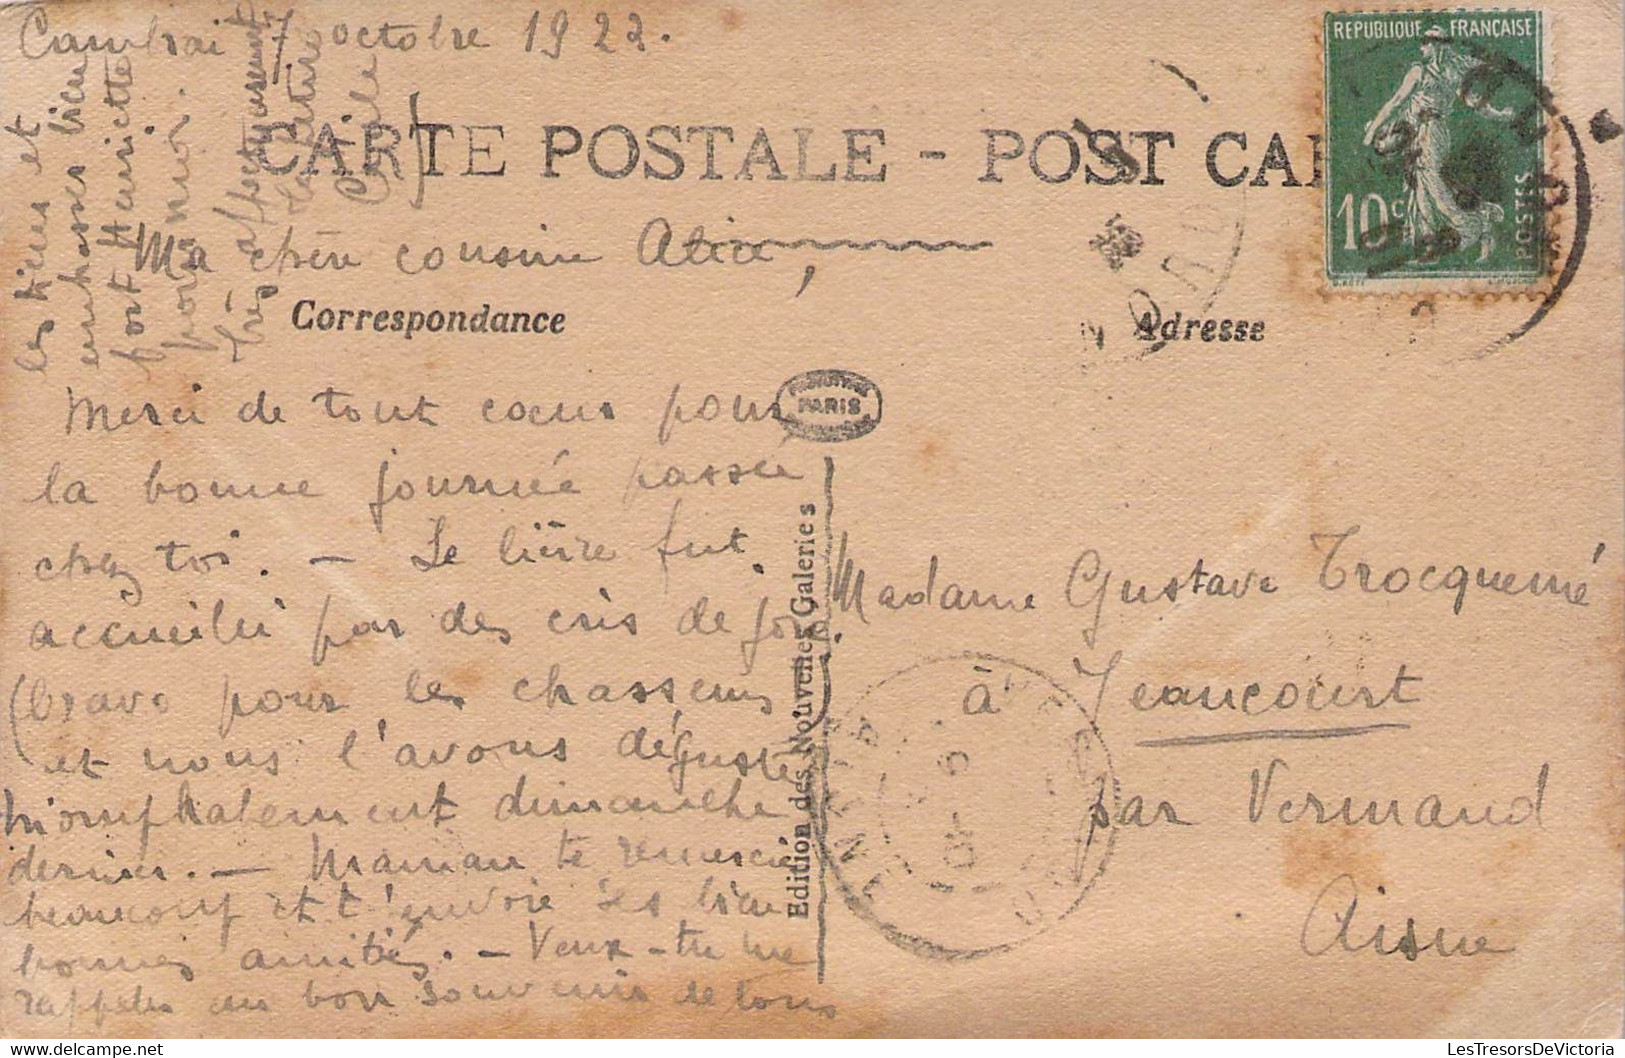 Cambrai 7 octobre 1922.
CARTE POSTALE - POST CAR
REPUBLIQUE FRANÇAISE
10c
POSTES
Ma chère cousine Alice,
Correspondance
Adresse
Merci de tout coeur pour
la bonne journée passée
chez toi. — Le lièvre fut
accueilli par des cris de joie
(bravo pour les chasseurs)
et nous l'avons dégusté
triomphalement dimanche
dernier. — Maman te remercie
beaucoup et t'envoie ses bien
bonnes amitiés. — Veux-tu me
rappeler au bon souvenir de tous
les tiens et
embrasser bien
fort Henriette
pour moi.
très affectueusement
Cécile
PARIS
Edition des Nouvelles Galeries
Madame Gustave Trocquemé
à Jeancourt
par Vermand
Aisne
LesTresorsDeVictoria